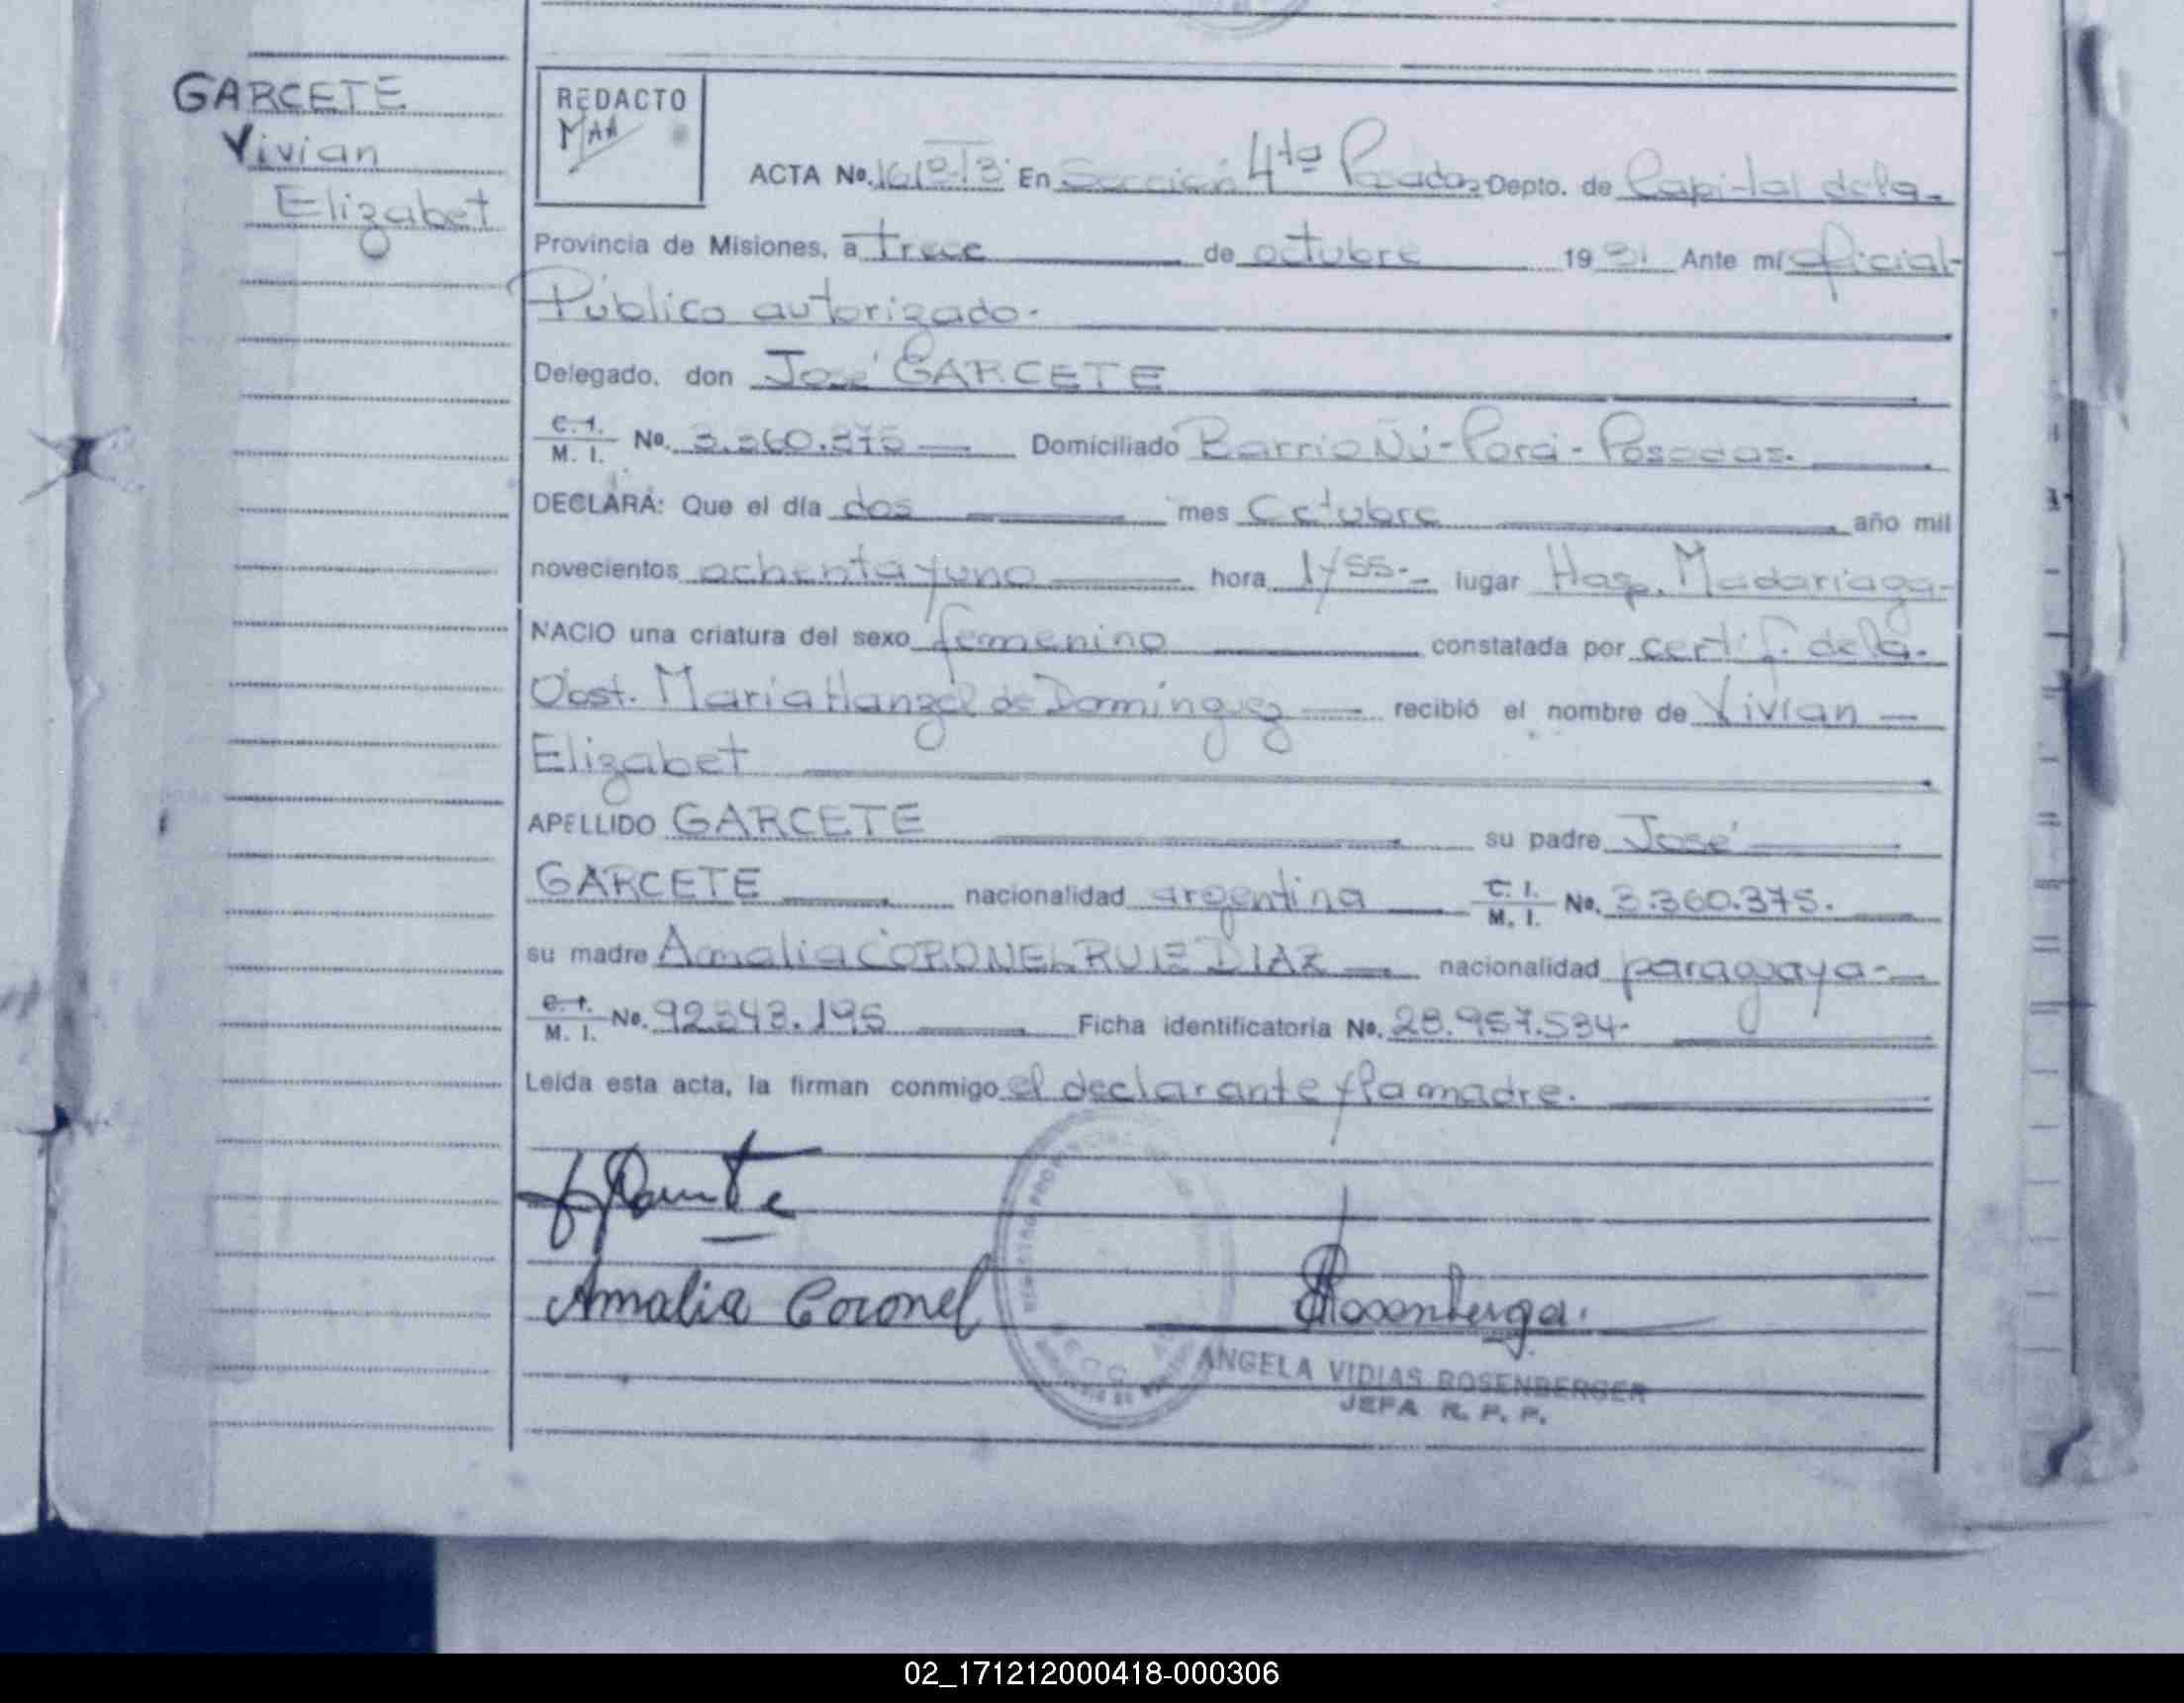 GARCETE
Vivian
Elizabet
REDACTO
MAA
ACTA No. En Sección 4ta Posadas Depto. de Capital de la-
Provincia de Misiones, a trece de octubre 1981 Ante mí oficial-
Público autorizado.
Delegado, don José GARCETE
C.I. M. I. No. 3.360.375 Domiciliado Barrio Ñú-Porá-Posadas.
DECLARA: Que el día dos mes Octubre año mil
novecientos ochenta y uno hora 1/55.- lugar Hosp. Madariaga-
NACIO una criatura del sexo femenino constatada por certif. de la-
Obst. María Hanzel de Domínguez recibió el nombre de Vivian
Elizabet
APELLIDO GARCETE su padre José
GARCETE nacionalidad argentina C. I. M. I. No. 3.360.375.
su madre Amalia CORONEL RUIZ DIAZ nacionalidad paraguaya-
C. I. M. I. No. 92.343.195 Ficha identificatoria No. 28.957.534-
Leída esta acta, la firman conmigo el declarante y la madre.
Amalia Coronel
ANGELA VIDIAS ROSENBERGER
JEFA R. P. P.
02_171212000418-000306